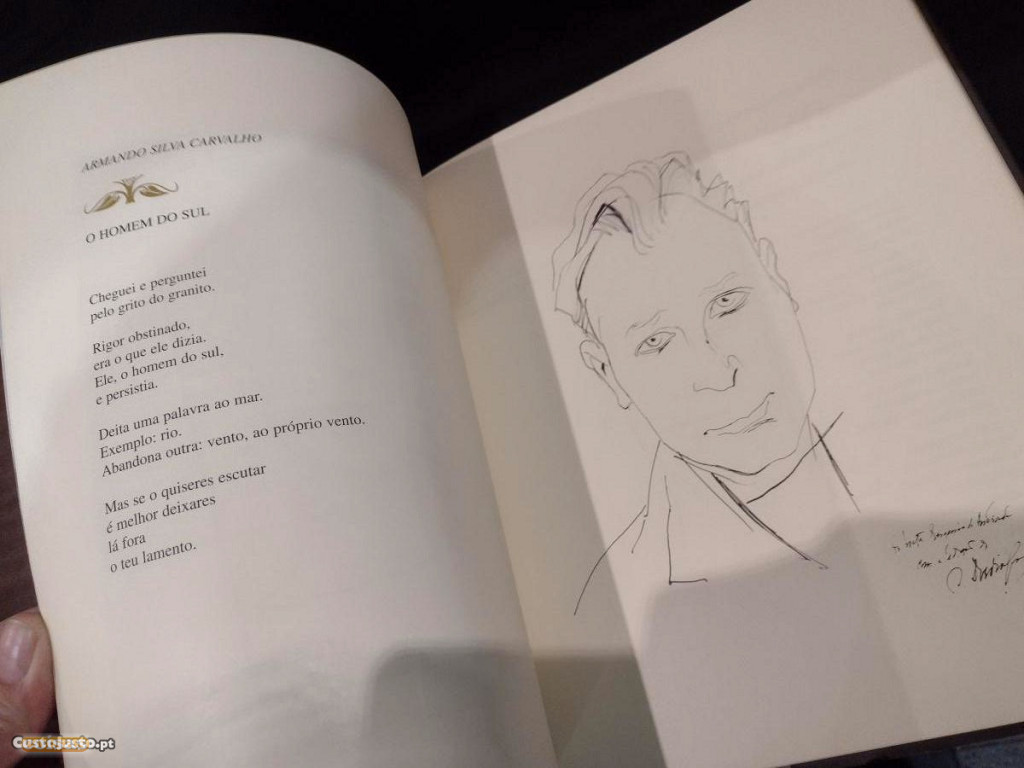 ARMANDO SILVA CARVALHO
O HOMEM DO SUL
Cheguei e perguntei
pelo grito do granito.
Rigor obstinado,
era o que ele dizia.
Ele, o homem do sul,
e persistia.
Deita uma palavra ao mar.
Exemplo: rio.
Abandona outra: vento, ao próprio vento.
Mas se o quiseres escutar
é melhor deixares
lá fora
o teu lamento.
Custojusto.pt